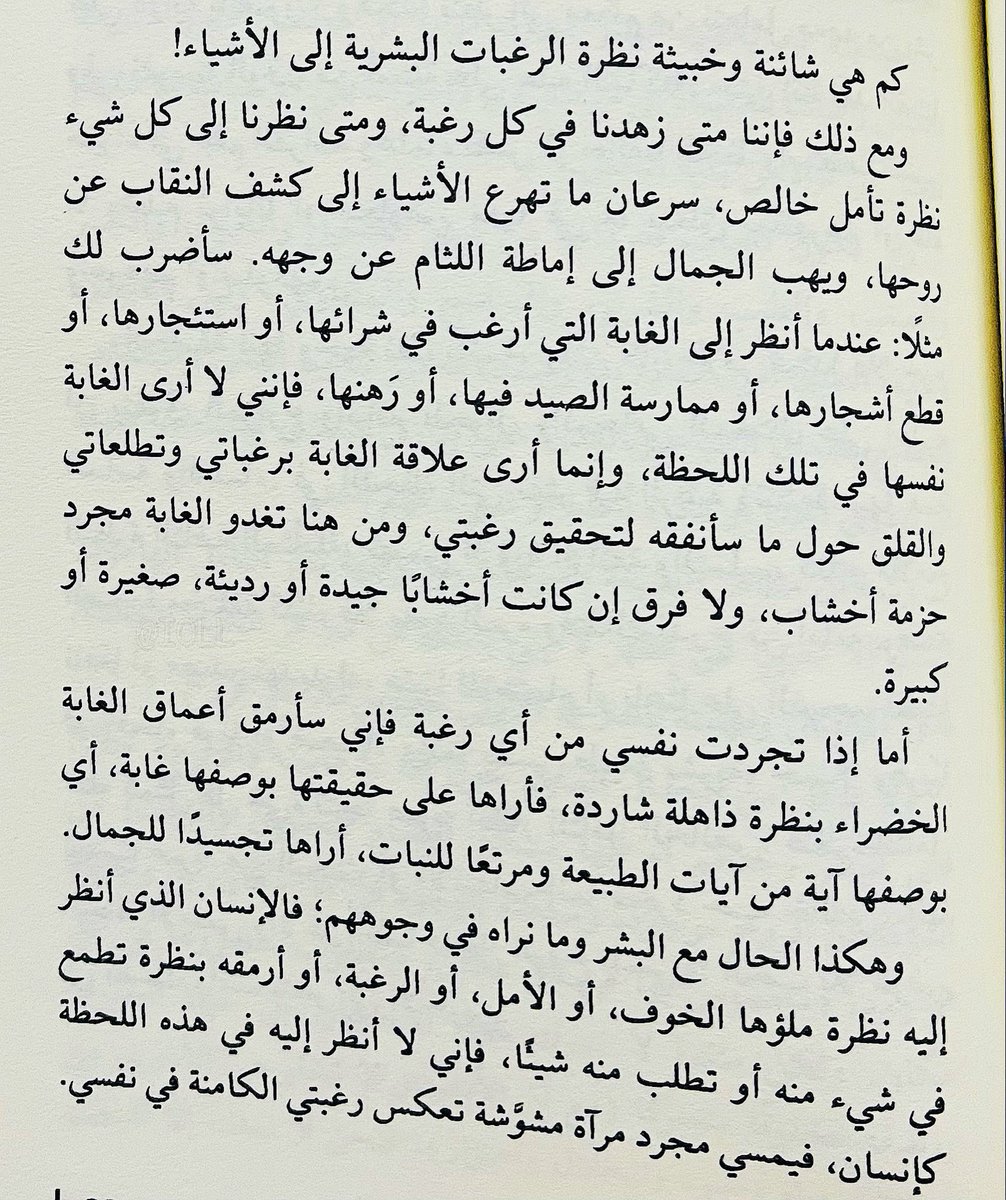 كم هي شائنة وخبيثة نظرة الرغبات البشرية إلى الأشياء!
ومع ذلك فإننا متى زهدنا في كل رغبة، ومتى نظرنا إلى كل شيء
نظرة تأمل خالص، سرعان ما تهرع الأشياء إلى كشف النقاب عن
روحها، ويهب الجمال إلى إماطة اللثام عن وجهه. سأضرب لك
مثلًا: عندما أنظر إلى الغابة التي أرغب في شرائها، أو استئجارها، أو
قطع أشجارها، أو ممارسة الصيد فيها، أو رَهنها، فإنني لا أرى الغابة
نفسها في تلك اللحظة، وإنما أرى علاقة الغابة برغباتي وتطلعاتي
والقلق حول ما سأنفقه لتحقيق رغبتي، ومن هنا تغدو الغابة مجرد
حزمة أخشاب، ولا فرق إن كانت أخشابًا جيدة أو رديئة، صغيرة أو
كبيرة.
أما إذا تجردت نفسي من أي رغبة فإني سأرمق أعماق الغابة
الخضراء بنظرة ذاهلة شاردة، فأراها على حقيقتها بوصفها غابة، أي
بوصفها آية من آيات الطبيعة ومرتعًا للنبات، أراها تجسيدًا للجمال.
وهكذا الحال مع البشر وما نراه في وجوههم؛ فالإنسان الذي أنظر
إليه نظرة ملؤها الخوف، أو الأمل، أو الرغبة، أو أرمقه بنظرة تطمع
في شيء منه أو تطلب منه شيئًا، فإني لا أنظر إليه في هذه اللحظة
كإنسان، فيمسي مجرد مرآة مشوَّشة تعكس رغبتي الكامنة في نفسي.